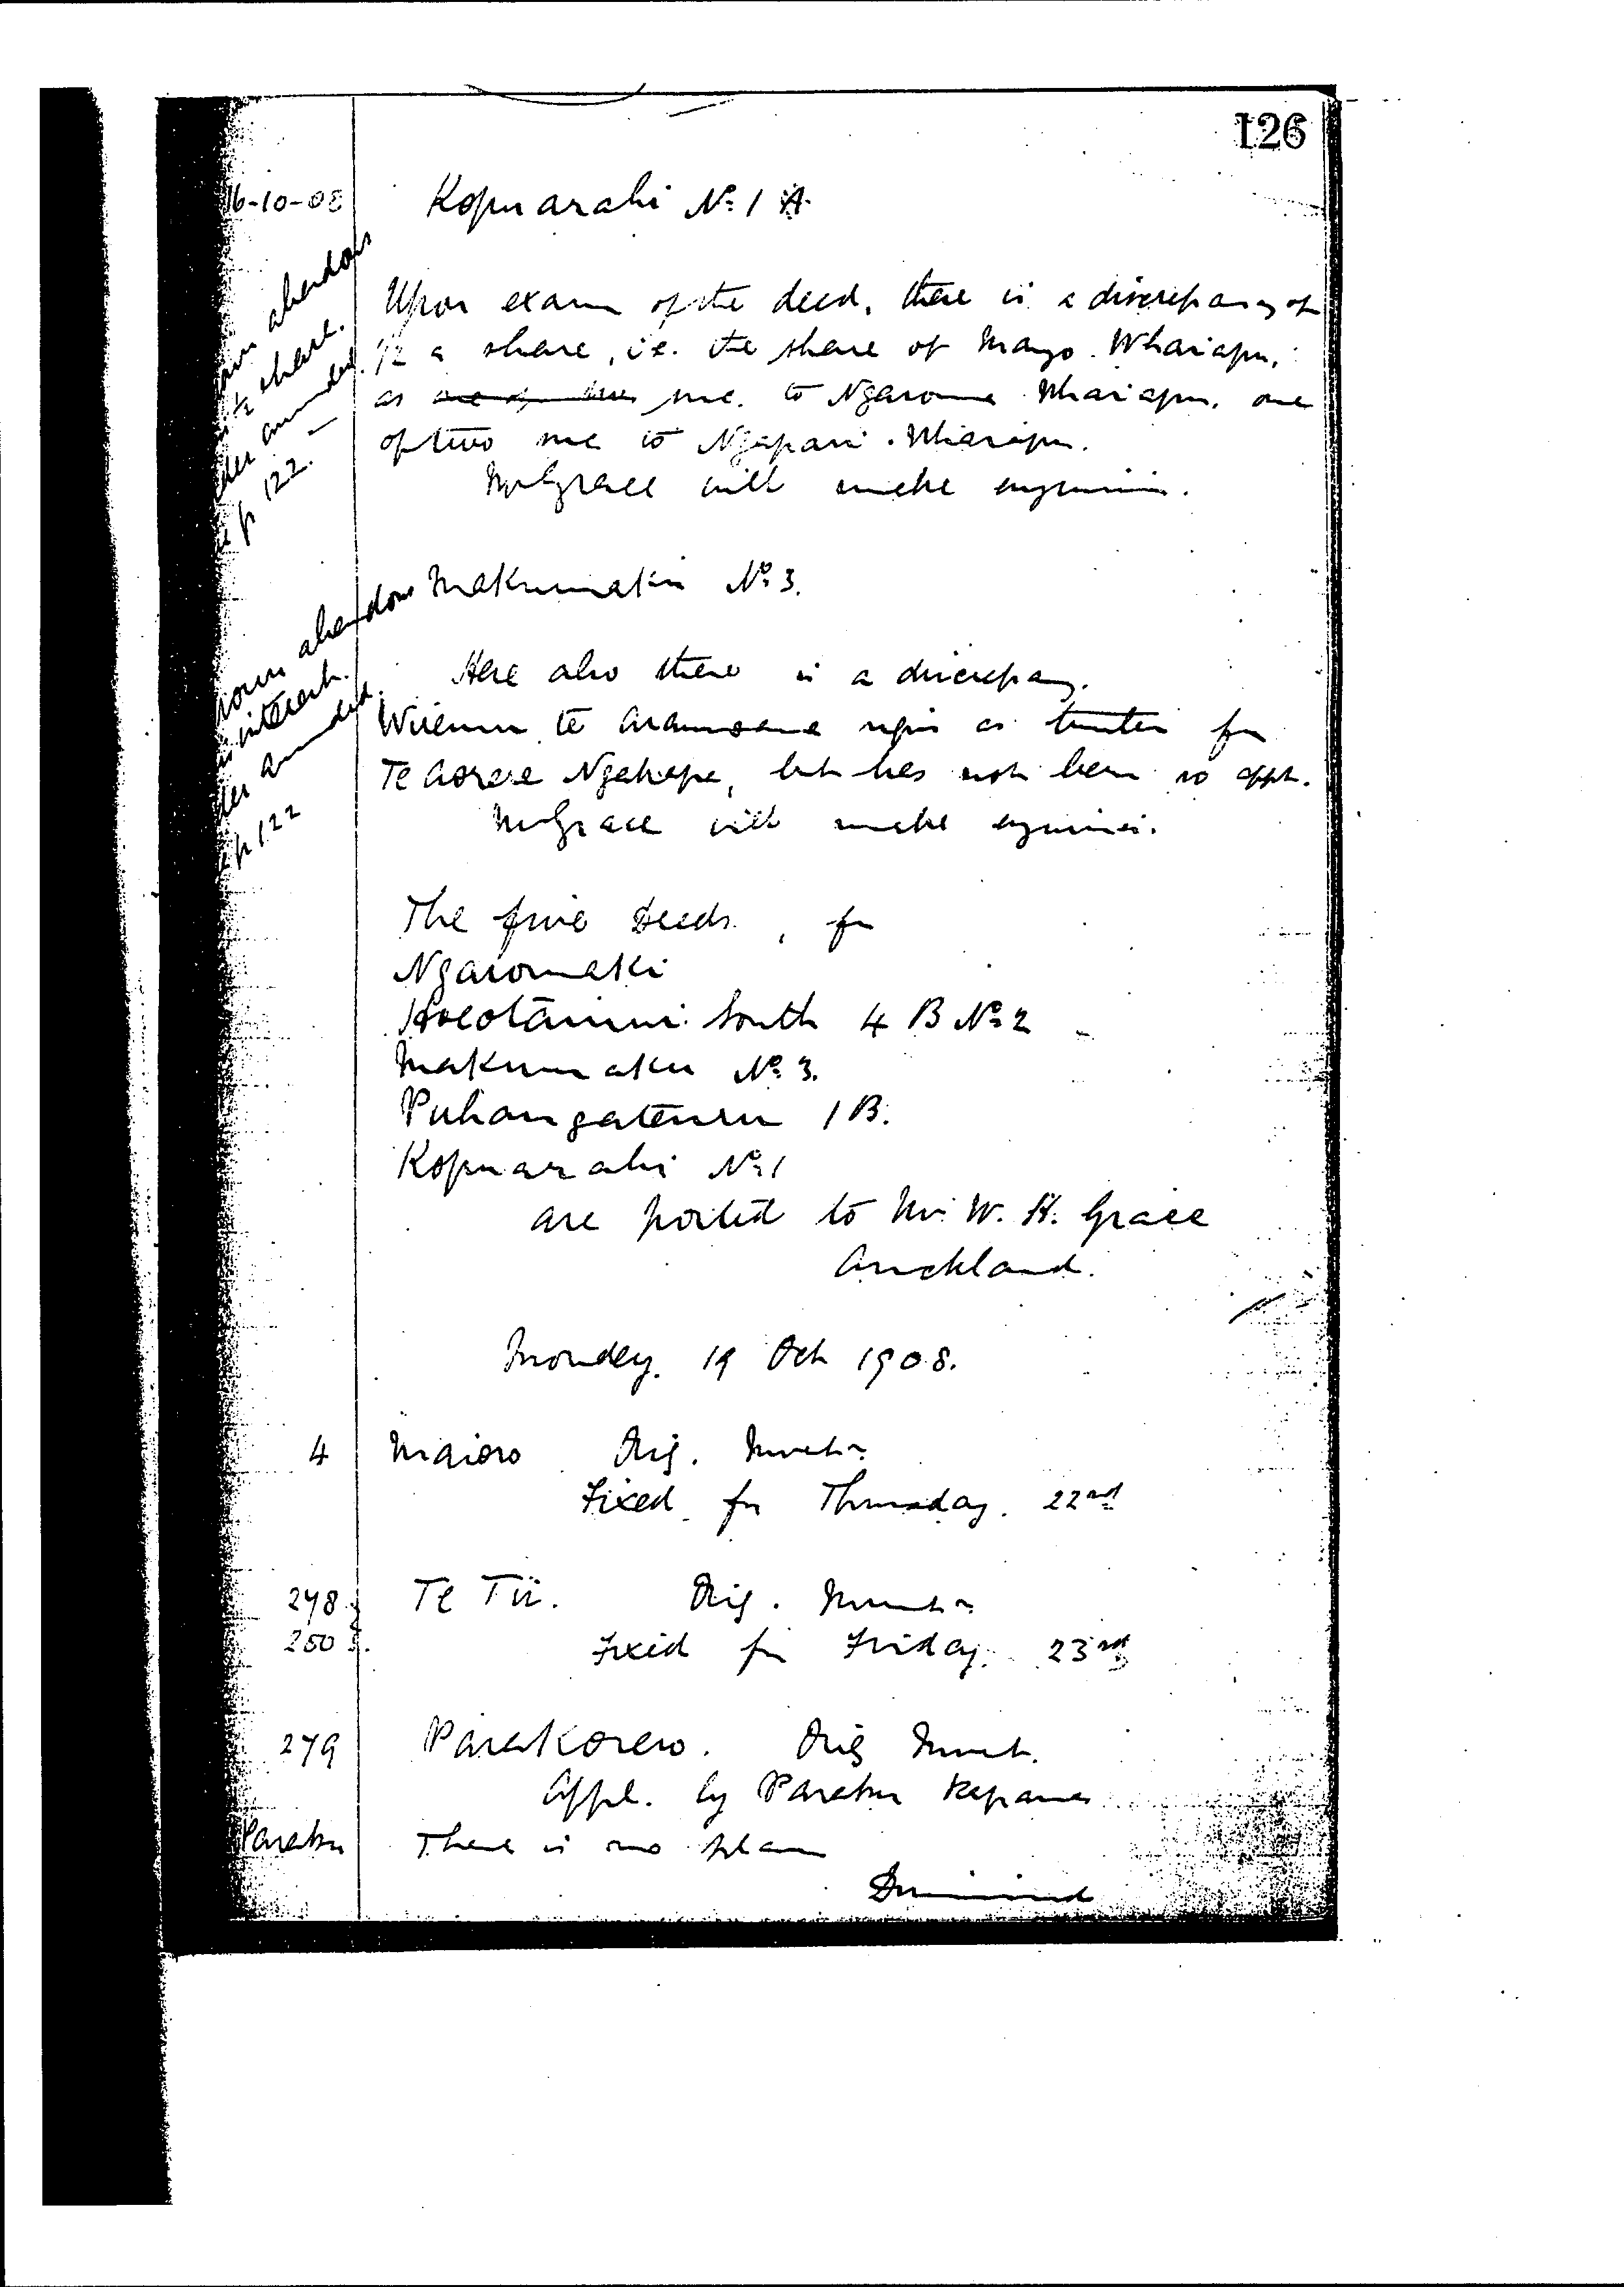 126
16-10-08
Kopuarahi No 1 A
abandons
½ share.
amended.
p 122.
Upon exam of the deed, there is a discrepancy of
½ a share, i.e. the share of Mango Whaiapu,
as suc. to Ngarouma Whaiapu, one
of two suc to Ngapari Whaiapu.
Mr Grace will make enquiries.
abandons
interest.
amended.
p 122
Makumaku No 3.
Here also there is a discrepancy.
Wiremu te Aramoana signs as trustee for
Te Aorere Ngahepe, but has not been so appt.
Mr Grace will make enquiries.
The five Deeds, for
Ngaromaki
Hoeotainui South 4 B No 2
Makumaku No 3.
Puhangateuru 1 B.
Kopuarahi No 1
are posted to Mr W. H. Grace
Auckland.
Monday. 19 Oct 1908.
4 Maioro Orig. Investn
Fixed for Thursday. 22nd
248 Te Tii. Orig. Investn
250 Fixed for Friday. 23rd
279 Parakorero. Orig Invest.
Appl. by Paraku Rapana
Paraku There is no plan
Dismissed